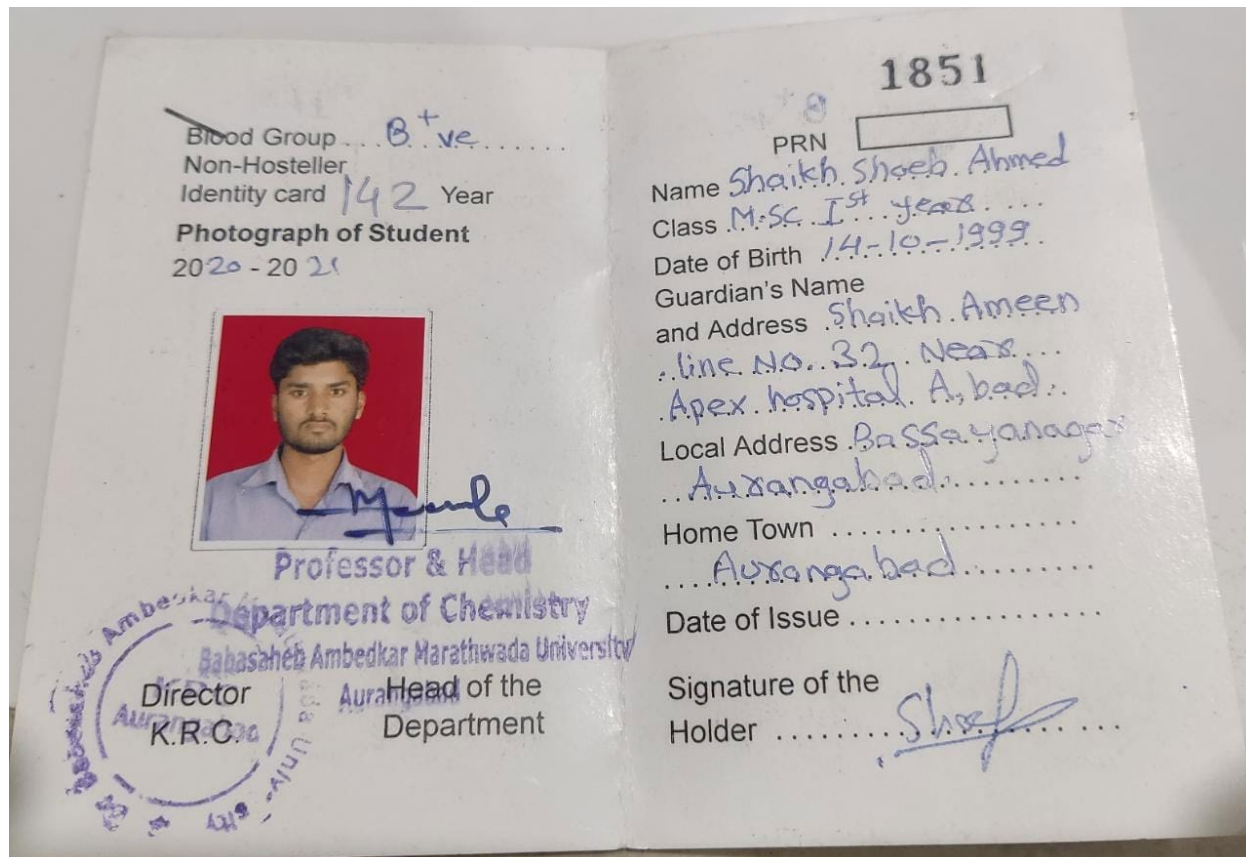 Blood Group .... B +ve ......
Non-Hosteller
Identity card 142 Year
Photograph of Student
2020 - 2021
Professor & Head
Department of Chemistry
Babasaheb Ambedkar Marathwada University
Aurangabad
Director
K.R.C.
Head of the
Department
Ambedkar
Aurangabad
1851
PRN
Name Shaikh. Shoeb. Ahmed
Class .M.SC. Ist year
Date of Birth .14-10-1999.
Guardian's Name
and Address .Shaikh. Ameen
..line NO. 32. Near....
.Apex. hospital. A,bad..
Local Address .Bassayanagar
..Aurangabad..........
Home Town .................
....Aurangabad..........
Date of Issue .................
Signature of the
Holder .........Shoeb......